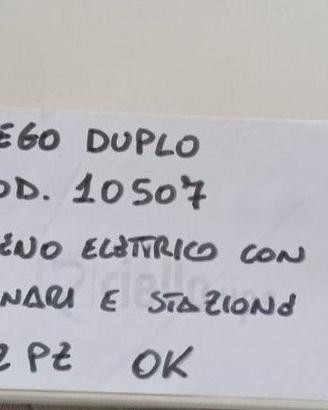 EGO DUPLO
OD. 10507
ENO ELETTRICO CON
NARI E STAZIONE
2 PZ OK